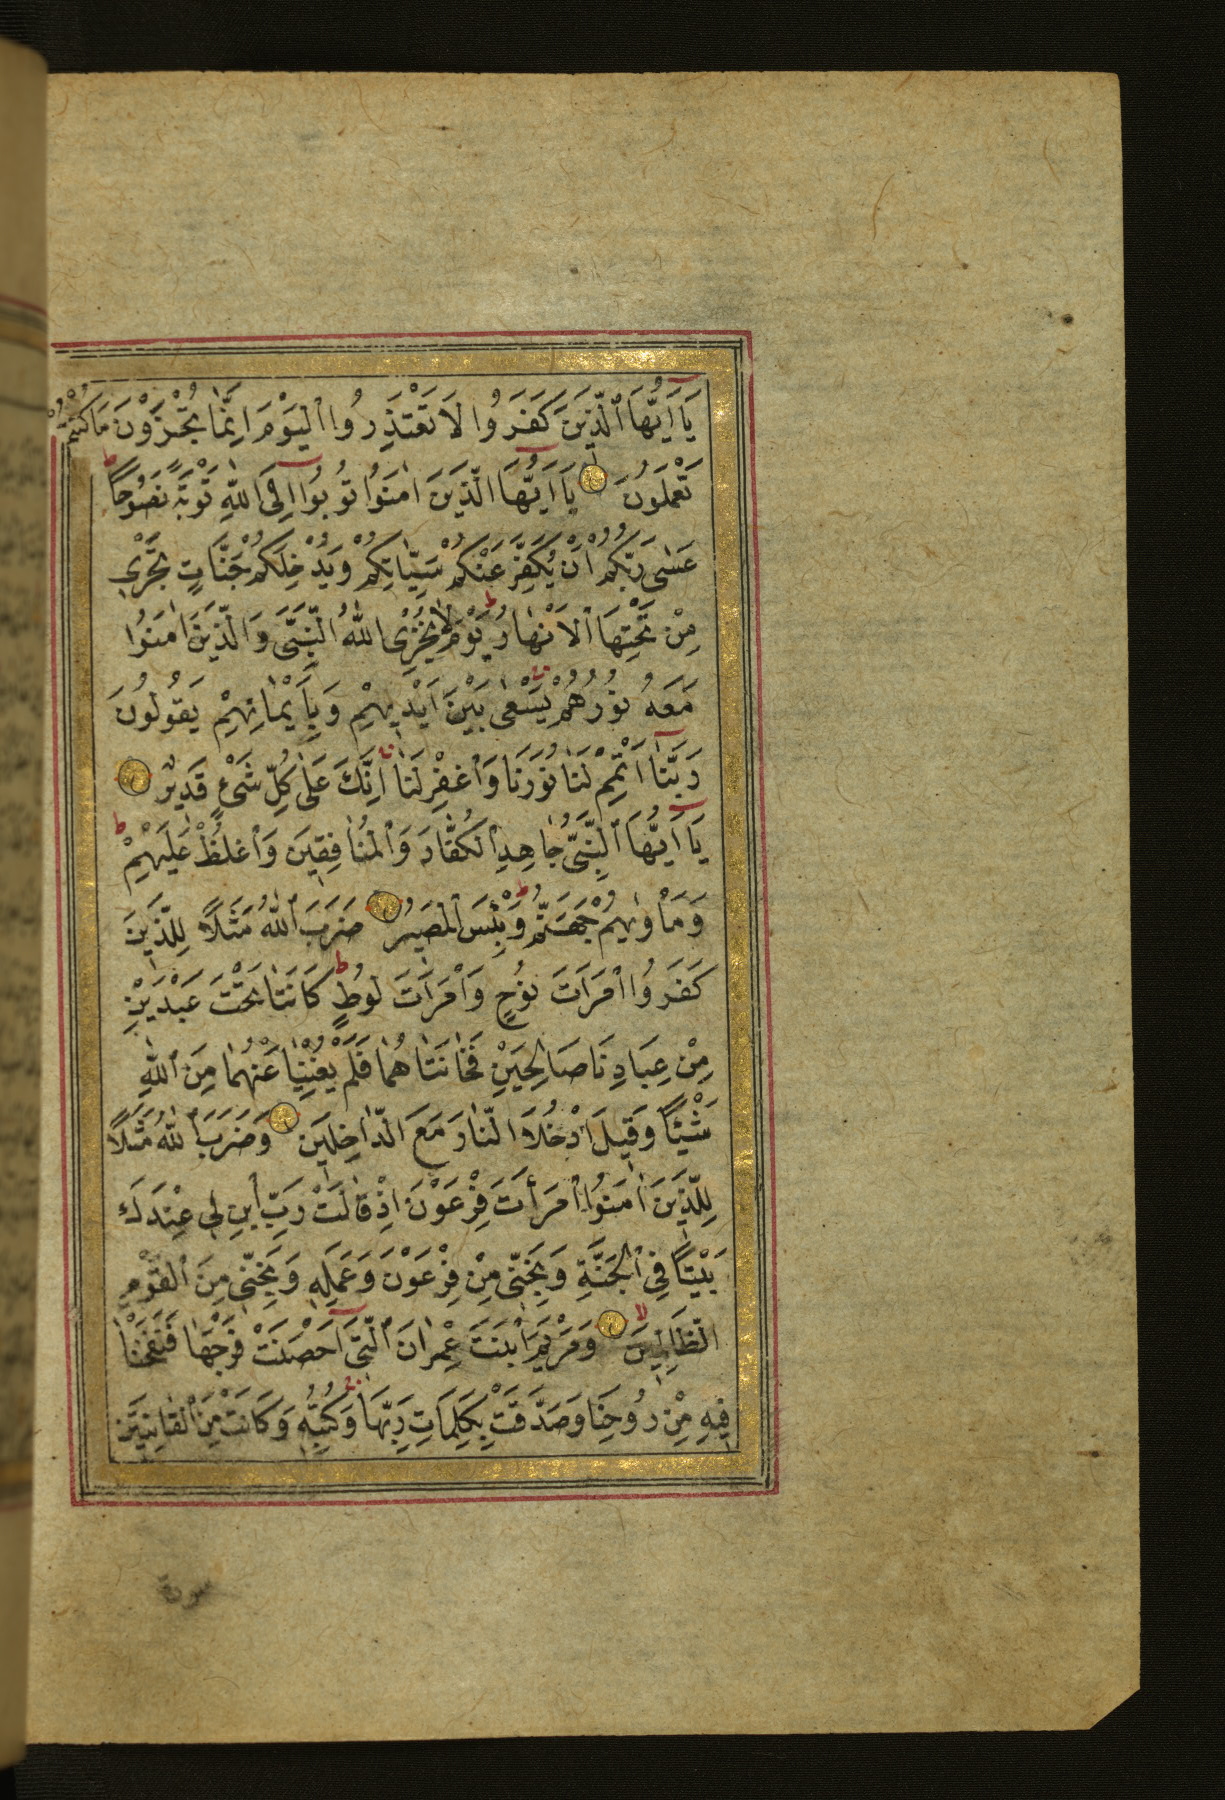 يَا اَيُّهَا ٱلَّذِينَ كَفَرُوا لَا تَعْتَذِرُوا ٱلْيَوْمَ اِنَّمَا تُجْزَوْنَ مَا كُنْتُمْ
تَعْمَلُونَ يَا اَيُّهَا الَّذِينَ اٰمَنُوا تُوبُوا اِلَى اللّٰهِ تَوْبَةً نَصُوحًا ط
عَسٰى رَبُّكُمْ اَنْ يُكَفِّرَ عَنْكُمْ سَيِّاٰتِكُمْ وَيُدْخِلَكُمْ جَنَّاتٍ تَجْرِى
مِنْ تَحْتِهَا ٱلْاَنْهَارُ يَوْمَ لَا يُخْزِى اللّٰهُ النَّبِىَّ وَالَّذِينَ اٰمَنُوا
مَعَهُ نُورُهُمْ يَسْعٰى بَيْنَ اَيْدِيهِمْ وَبِاَيْمَانِهِمْ يَقُولُونَ
رَبَّنَا اَتْمِمْ لَنَا نُورَنَا وَٱغْفِرْ لَنَا اِنَّكَ عَلٰى كُلِّ شَىْءٍ قَدِيرٌ
يَا اَيُّهَا ٱلنَّبِىُّ جَاهِدِ ٱلْكُفَّارَ وَٱلْمُنَافِقِينَ وَٱغْلُظْ عَلَيْهِمْ ط
وَمَأْوٰيهُمْ جَهَنَّمُ ط وَبِئْسَ ٱلْمَصِيرُ ضَرَبَ ٱللّٰهُ مَثَلًا لِلَّذِينَ
كَفَرُوا ٱمْرَاَتَ نُوحٍ وَٱمْرَاَتَ لُوطٍ ط كَانَتَا تَحْتَ عَبْدَيْنِ
مِنْ عِبَادِنَا صَالِحَيْنِ فَخَانَتَاهُمَا فَلَمْ يُغْنِيَا عَنْهُمَا مِنَ ٱللّٰهِ
شَيْئًا وَقِيلَ ٱدْخُلَا النَّارَ مَعَ الدَّاخِلِينَ وَضَرَبَ ٱللّٰهُ مَثَلًا
لِلَّذِينَ اٰمَنُوا ٱمْرَأَتَ فِرْعَوْنَ اِذْ قَالَتْ رَبِّ ٱبْنِ لِى عِنْدَكَ
بَيْتًا فِى ٱلْجَنَّةِ وَنَجِّنِى مِنْ فِرْعَوْنَ وَعَمَلِهِ وَنَجِّنِى مِنَ ٱلْقَوْمِ
الظَّالِمِينَ لا وَمَرْيَمَ ٱبْنَتَ عِمْرَانَ ٱلَّتِى اَحْصَنَتْ فَرْجَهَا فَنَفَخْنَا
فِيهِ مِنْ رُوحِنَا وَصَدَّقَتْ بِكَلِمَاتِ رَبِّهَا وَكُتُبِهِ وَكَانَتْ مِنَ ٱلْقَانِتِينَ
سورة